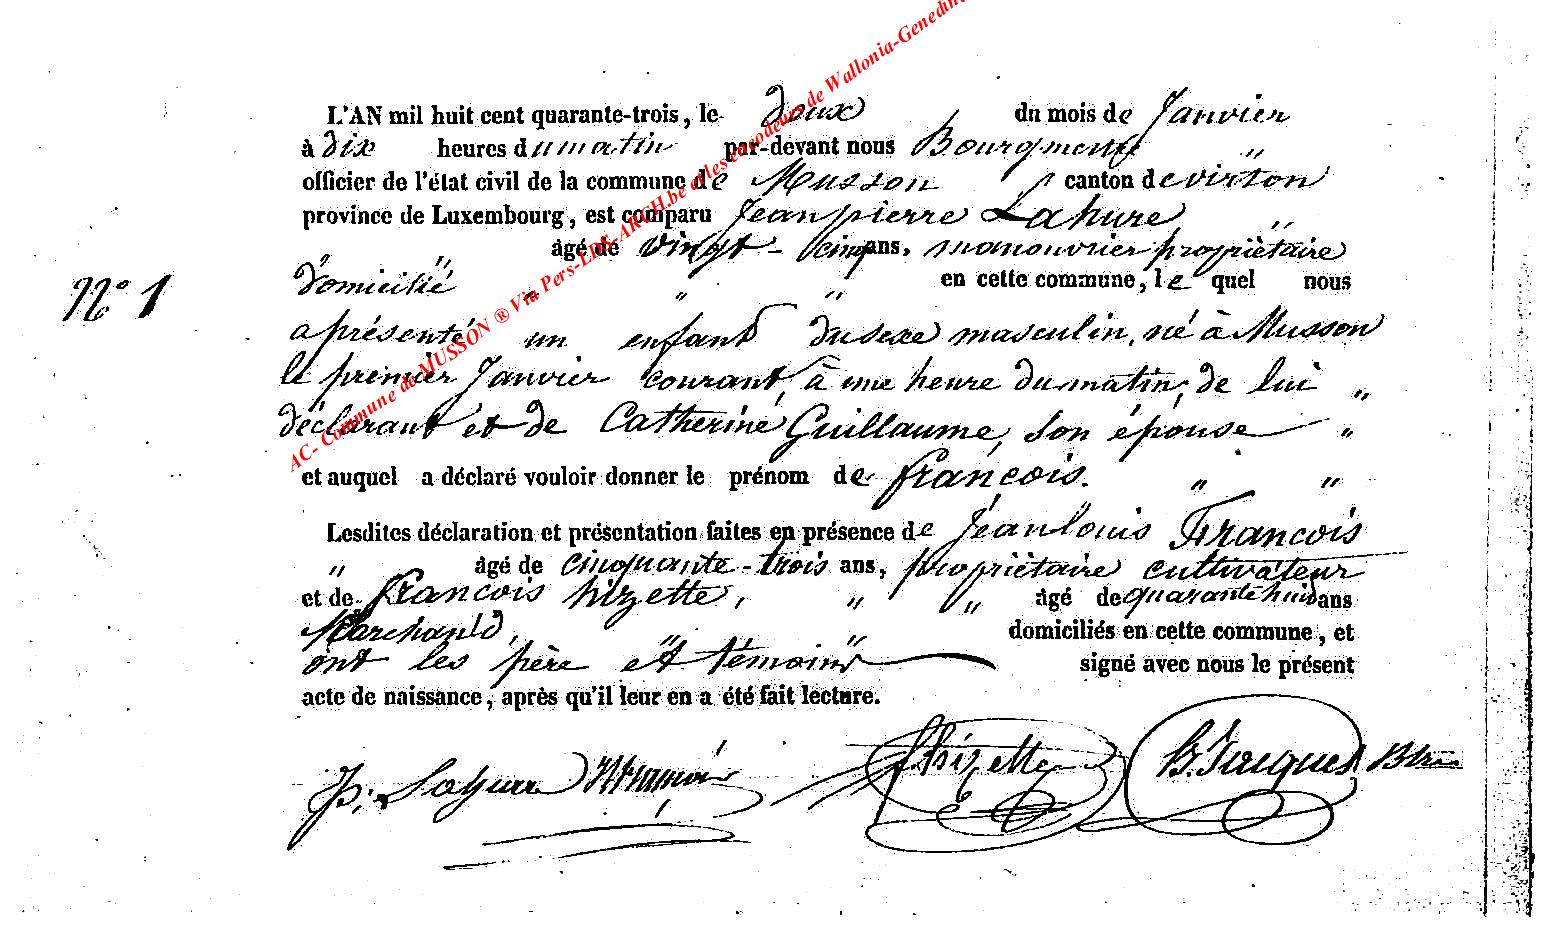 L'AN mil huit cent quarante-trois, le deux du mois de Janvier
à dix heures du matin par-devant nous Bourgmestre "
officier de l'état civil de la commune de Musson canton de virton
province de Luxembourg, est comparu Jeanpierre Lahure "
" " âgé de vingt-cinq ans, manouvrier propriétaire
N° 1
domicilié " " " en cette commune, le quel nous
a présenté un enfant du sexe masculin, né à Musson
le premier Janvier courant, à une heure du matin, de lui "
déclarant et de Catherine Guillaume, son épouse "
et auquel a déclaré vouloir donner le prénom de françois. " "
Lesdites déclaration et présentation faites en présence de Jeanlouis François
" âgé de cinquante-trois ans, propriétaire cultivateur
et de françois hizette, " " âgé de quarante huit ans
Marchand, " " domiciliés en cette commune, et
ont les père et témoins signé avec nous le présent
acte de naissance, après qu'il leur en a été fait lecture.
jp. Lahure fhizette B. Jacques
AC- Commune de MUSSON ® Via Pers-LDS-ARCH.be et les encodeurs de Wallonia-Genedin